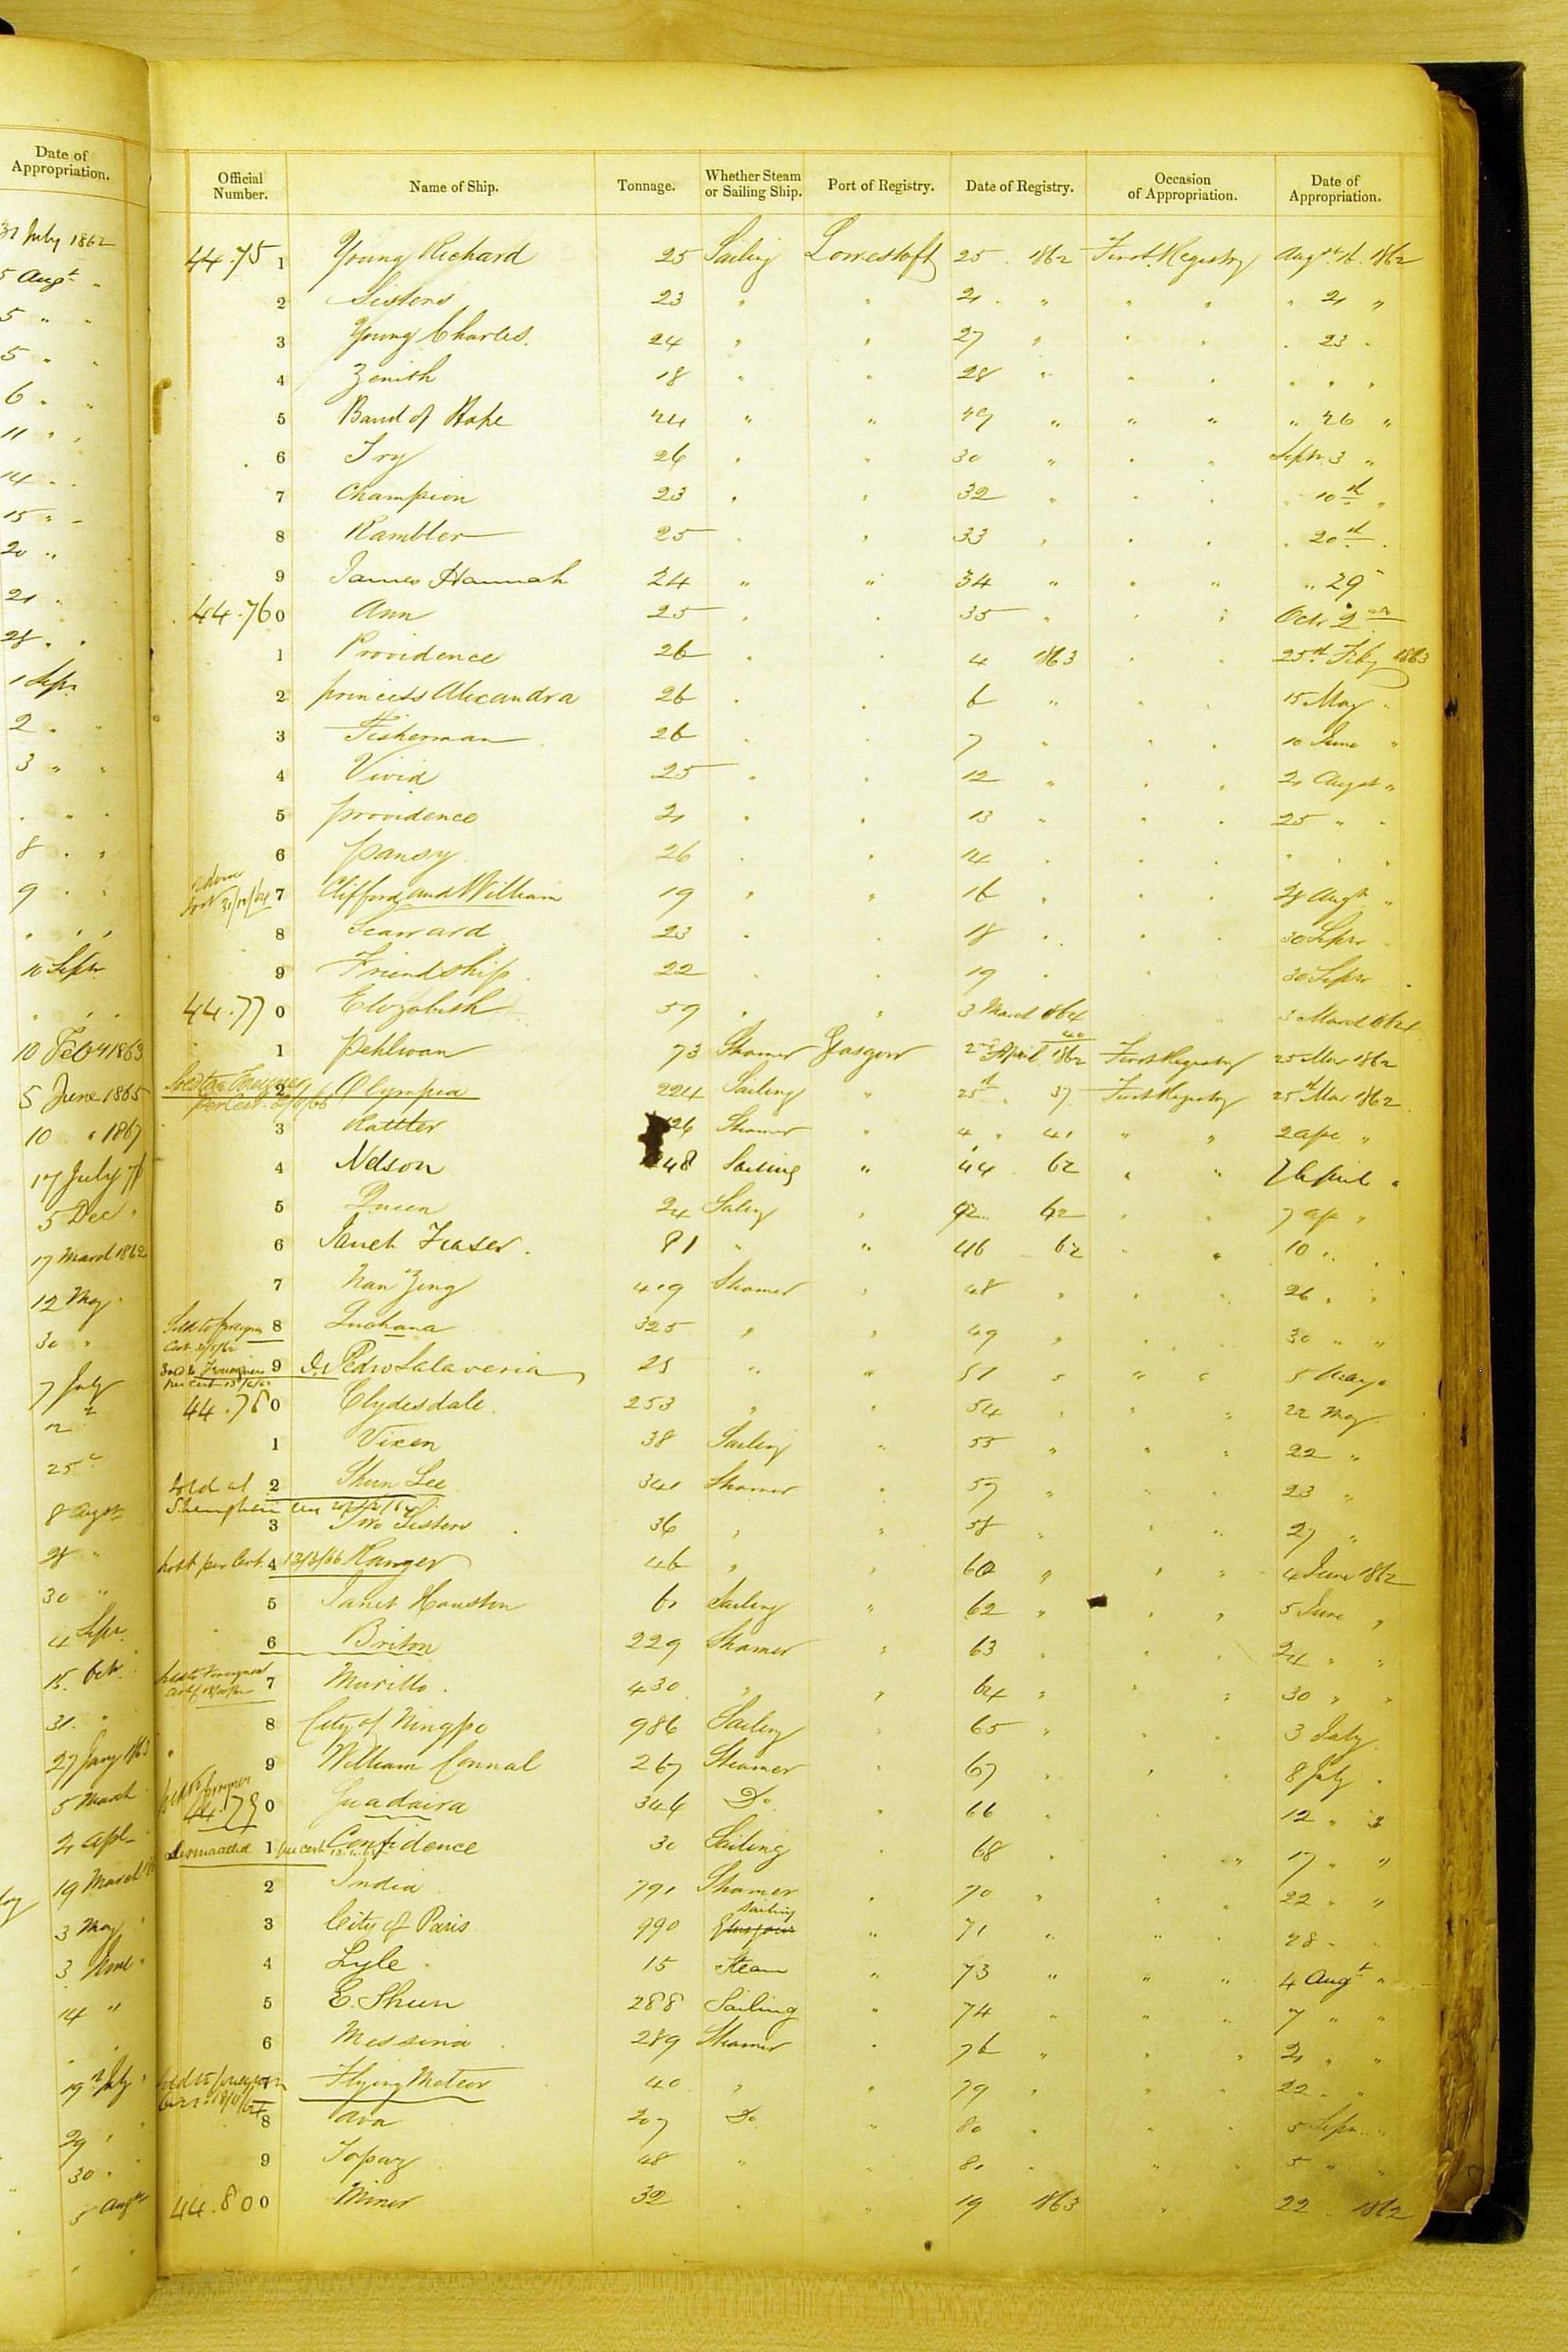 Date of Appropriation.
31 July 1862
5 Augt "
5 " "
5 " "
6 " "
11 " "
14 " "
15 " "
20 "
21 "
28 " "
1 Sepr
2 " "
3 " "
" " "
8 " "
9 " "
" " "
10 Sepr
" " "
10 Feby 1863
5 June 1865
10 " 1867
17 July
5 Dec "
17 March 1862
12 May "
30 "
7 July
25
8 Augst
28 "
30 "
4 Sepr
15. Octr
31. "
27 Jany 1863
5 March
2 Apl
19 March
3 May "
3 June "
14 "
19 July "
29 "
30 "
5 Augt
Official Number. Name of Ship. Tonnage. Whether Steam or Sailing Ship. Port of Registry. Date of Registry. Occasion of Appropriation. Date of Appropriation.
44.75 1 Young Richard 25 Sailing Lowestoft 25 . 1862 First Registry Augst 16. 1862
2 Sisters 23 " " 21 . " " " " 21 "
3 Young Charles. 24 " " 27 " " " " 23 "
4 Zenith 18 " " 28 " " " " " "
5 Band of Hope 24 " " 29 " " " " 26 "
6 Try 26 " " 30 " " " Sepr 3 "
7 Champion 23 " " 32 " " " " 10th "
8 Rambler 25 " " 33 " " " " 20th "
9 James Hannah 24 " " 34 " " " " 29
44.76 0 Ann 25 " " 35 " " " Octr 2nd
1 Providence 26 " " 4 1863 " " 25th Feby 1863
2 Princess Alexandra 26 " " 6 " " " 15 May "
3 Fisherman 26 " " 7 " " " 10 June "
4 Vivid 25 " " 12 " " " 21 Augst "
5 Providence 21 " " 13 " " " 25 " "
6 Pansy 26 " " 14 " " " " " "
Lost 31/12/64 7 Clifford and William 19 " " 16 " " " 28 Augt "
8 Seaward 23 " " 18 " " " 30 Sepr
9 Friendship 22 " " 19 " " 30 Sepr "
44.77 0 Elizabeth 59 " " 3 March 1864 " " 3 March 1864
1 Pehlwan 73 Steamer Glasgow 2nd April 40 1862 First Registry 25 Mar 1862
Sold to a Foreigner per Cert. 2 Olympia 224 Sailing " 25th " 37 First Registry 25th Mar 1862
3 Rattler 126 Steamer " 4 " 41 " " 2 Apl "
4 Nelson 48 Sailing " 44 62 " " 7 April "
5 Queen 24 Sailing " 42 62 " " 7 Ap "
6 Janet Fraser. 81 " " 46 62 " " 10 " "
7 Nan Zing 419 Steamer " 48 " " " 26 " "
Sold to foreigner Cert 8 Luchana 325 " " 49 " " " 30 " "
Sold to Foreigners per Cert 9 Dn Pedro Salaveria 25 " " 51 " " " 5 May "
44.78 0 Clydesdale. 253 " " 54 " " " 22 May
1 Vixen 38 Sailing " 55 " " " 22 "
Sold at Shanghai 2 Shun Lee 341 Steamer " 57 " " " 23 "
3 Two Sisters 36 " " 58 " " " 27 "
Lost per Cert. 4 13/3/66 Ranger 46 " " 60 " " " 4 June 1862
5 Janet Houston 61 Sailing " 62 " " " 5 June "
6 Briton 229 Steamer " 63 " " " 24 " "
Sold to Foreigners Cert 7 Murillo. 430 " " 64 " " " 30 " "
8 City of Ningpo 986 Sailing " 65 " " " 3 July
9 William Connal 267 Steamer " 67 " " " 8 July "
Sold to foreigner 44.79 0 Guadaira 346 Do " 66 " 12 " "
Dismantled 1 per cert Confidence 30 Sailing " 68 " " " 17 " "
2 India 791 Steamer " 70 " " " 22 " "
3 City of Paris 990 Glasgow Sailing " 71 " " " 28 " "
4 Lyle 15 Steam " 73 " " " 4 Augt "
5 E. Shun 288 Sailing " 74 " " " 7 " "
6 Messina 289 Steamer " 76 " " " 21 " "
Sold to foreigner Cert 7 Flying Meteor 40 " " 79 " " " 22 " "
8 Ava 207 Do " 80 " " " 5 Sepr "
9 Topaz 48 " " 81 " " " 5 " "
44.80 0 Miner 32 " " 19 1863 " 22 " 1862